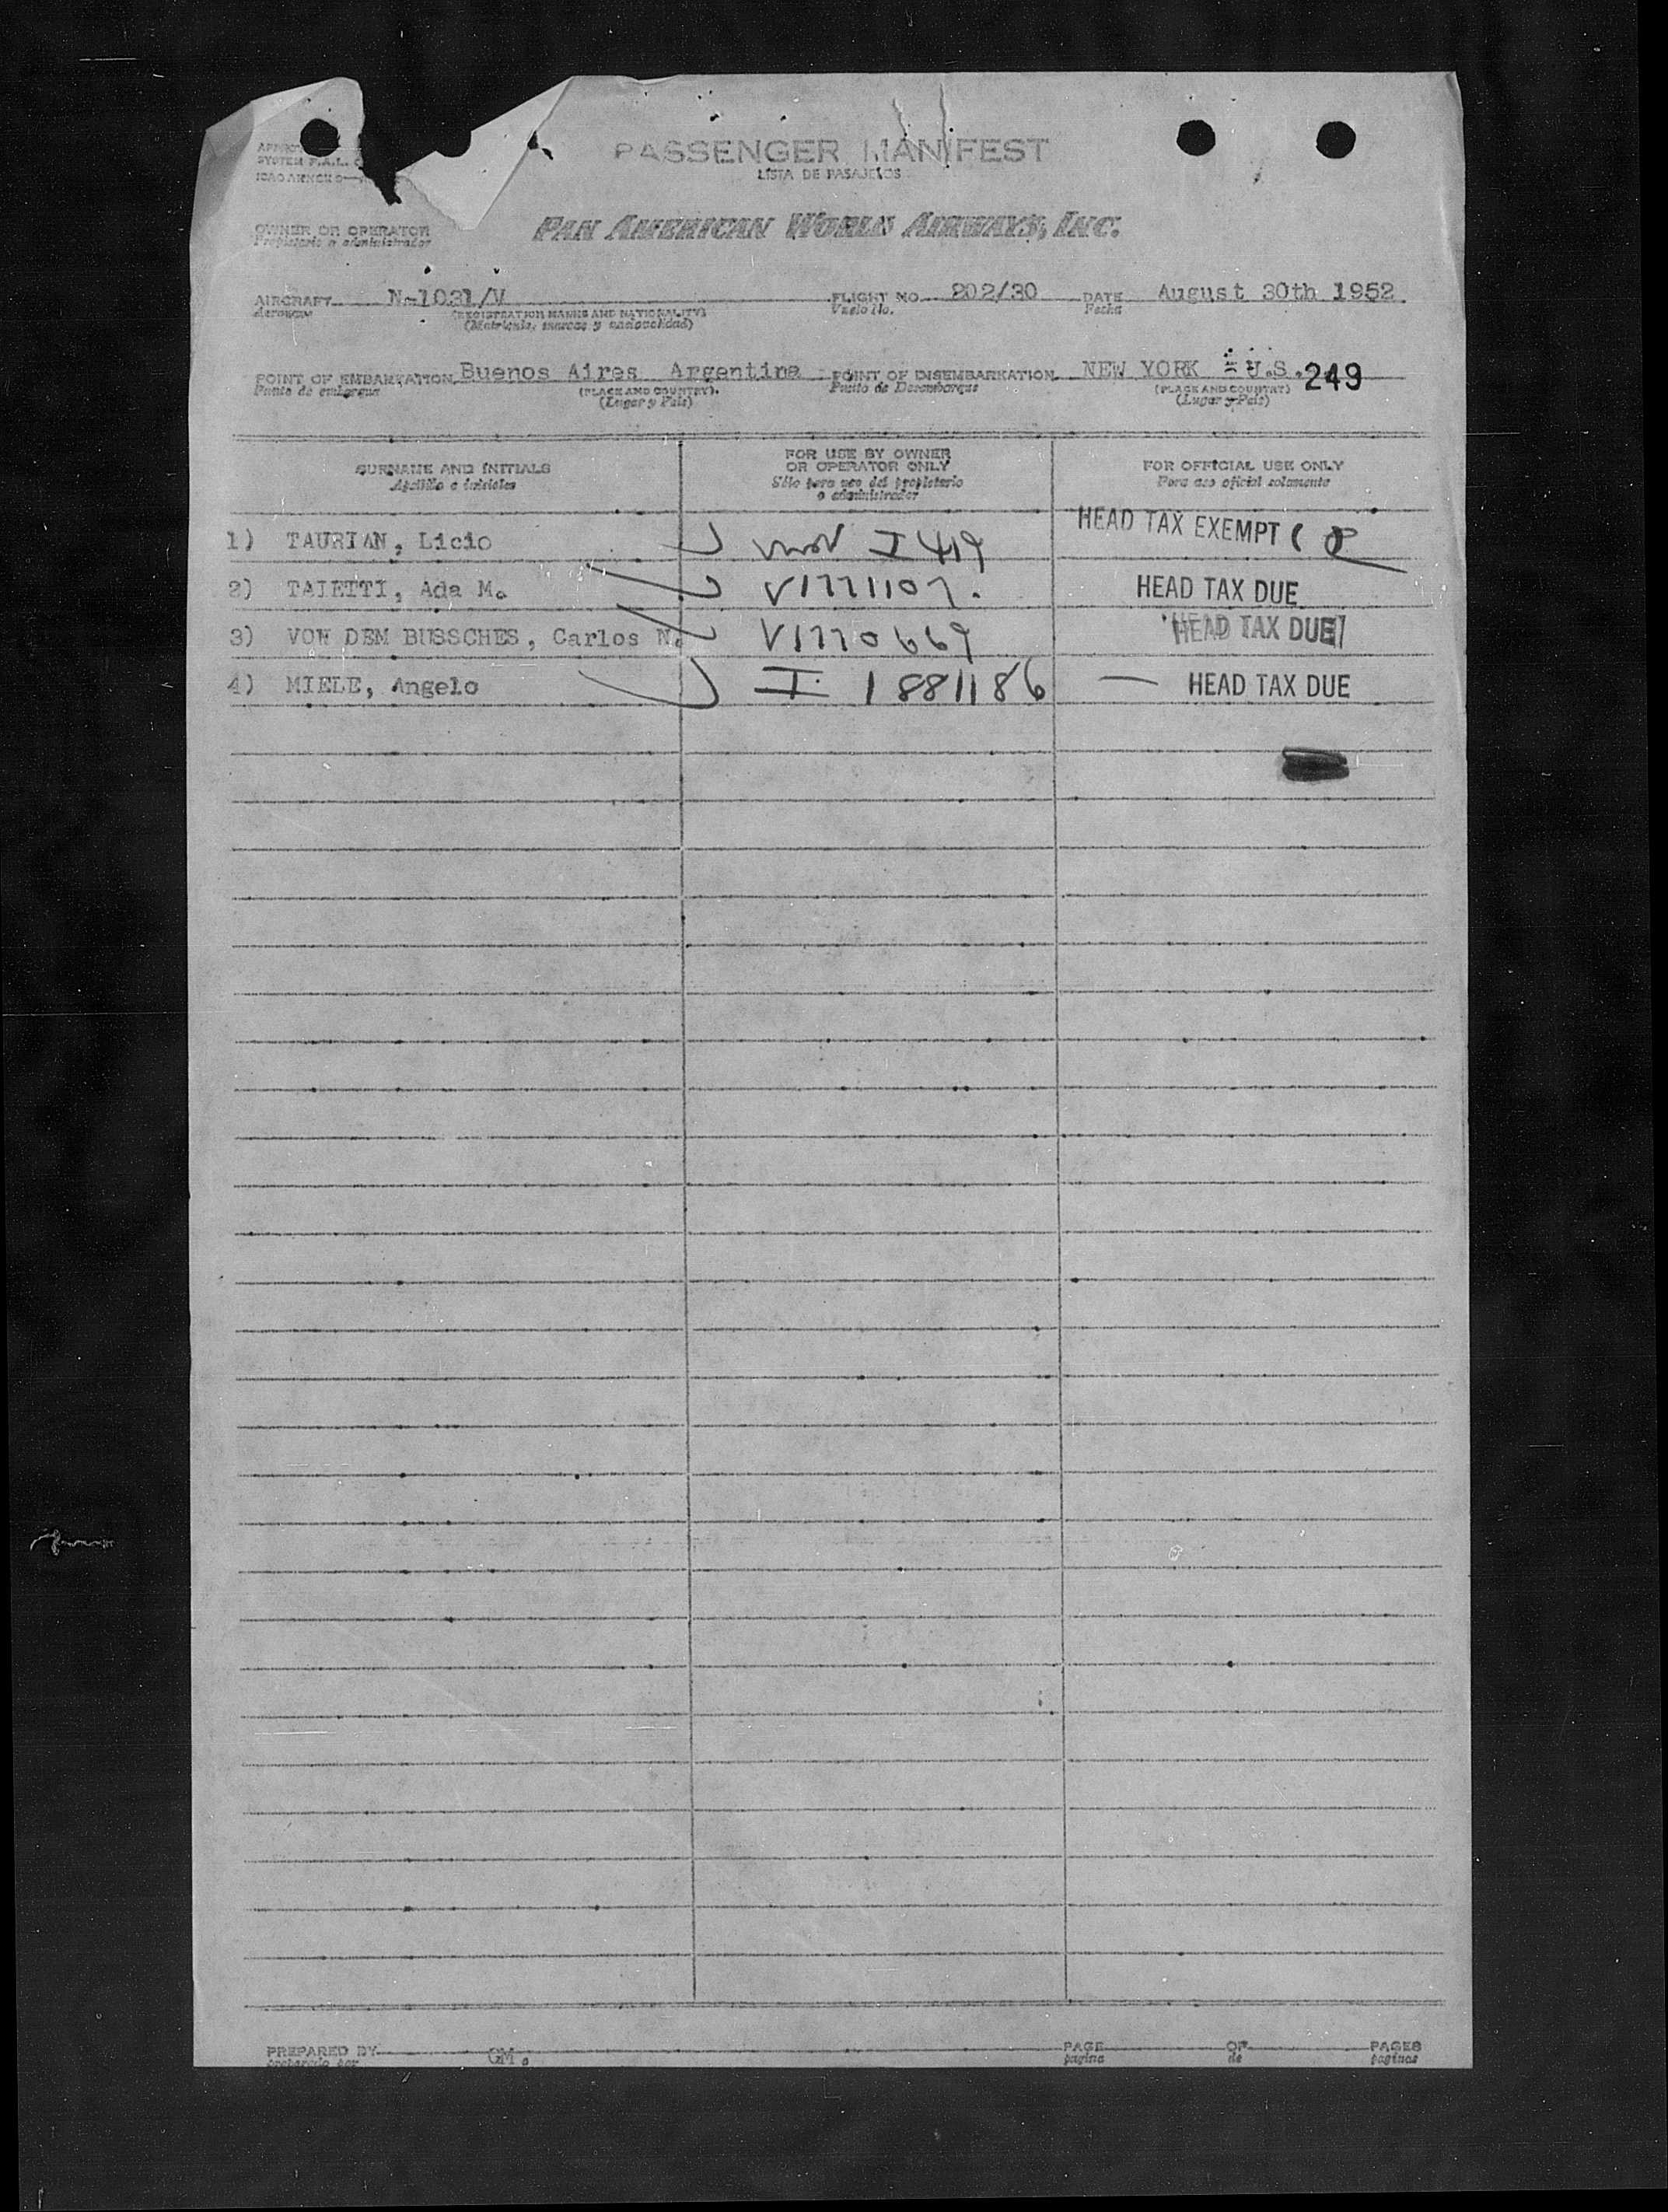 PASSENGER MANIFEST
LISTA DE PASAJEROS
SYSTEM F.A.L.
OWNER OR OPERATOR
Propietario o administrador
PAN AMERICAN WORLD AIRWAYS, INC.
AIRCRAFT N-1031/V FLIGHT NO. 202/30 DATE August 30th 1952
Aeronave (REGISTRATION MARKS AND NATIONALITY) Vuelo No. Fecha
(Matrícula, marcas y nacionalidad)
POINT OF EMBARKATION Buenos Aires Argentina POINT OF DISEMBARKATION NEW YORK = U.S. 249
Punto de embarque (PLACE AND COUNTRY). Punto de Desembarque (PLACE AND COUNTRY)
(Lugar y País) (Lugar y País)
SURNAME AND INITIALS FOR USE BY OWNER OR OPERATOR ONLY FOR OFFICIAL USE ONLY
Apellido e iniciales Sólo para uso del propietario o administrador Para uso oficial solamente
1) TAURIAN, Licio I 419 HEAD TAX EXEMPT
2) TAIETTI, Ada M. V1771107. HEAD TAX DUE
3) VON DEM BUSSCHES, Carlos N. V1770669 HEAD TAX DUE
4) MIELE, Angelo I 1881186 — HEAD TAX DUE
PREPARED BY GM. PAGE OF PAGES
preparado por pagina de paginas